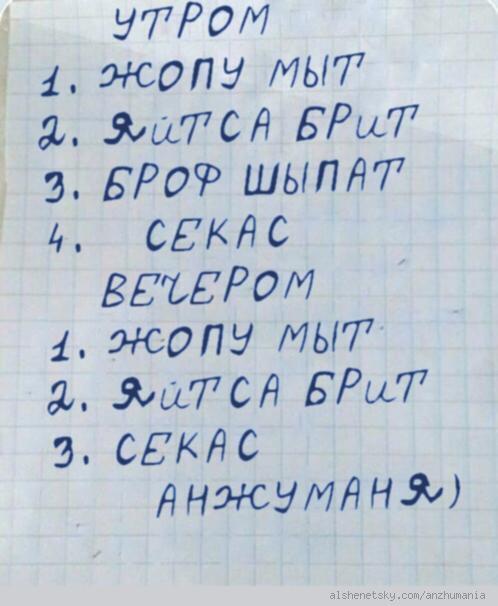 УТРОМ
1. ЖОПУ МЫТ
2. ЯЙТСА БРИТ
3. БРОФ ШЫПАТ
4. СЕКАС
ВЕЧЕРОМ
1. ЖОПУ МЫТ
2. ЯЙТСА БРИТ
3. СЕКАС
АНЖУМАНЯ)
alshenetsky.com/anzhumania